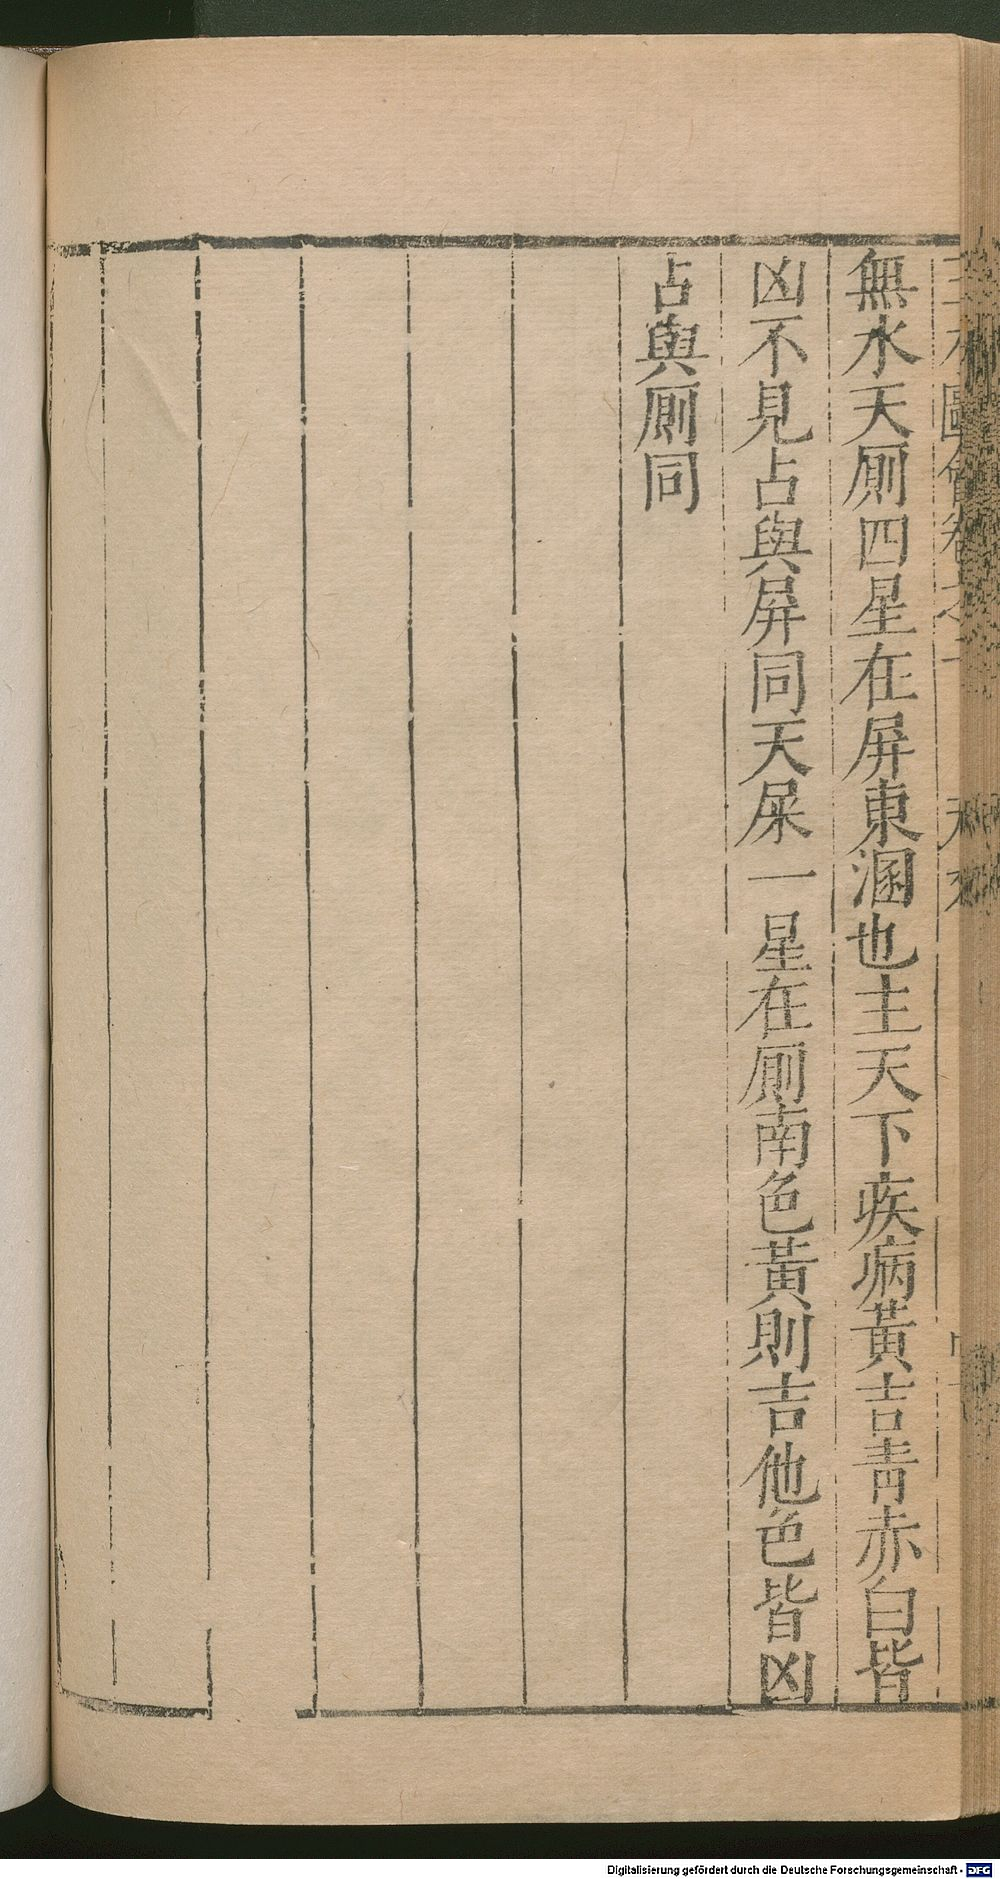 無水天厠四星在屏東溷也主天下疾病黃吉青赤白皆
凶不見占與屏同天屎一星在厠南色黃則吉他色皆凶
占與厠同
Digitalisierung gefördert durch die Deutsche Forschungsgemeinschaft - DFG